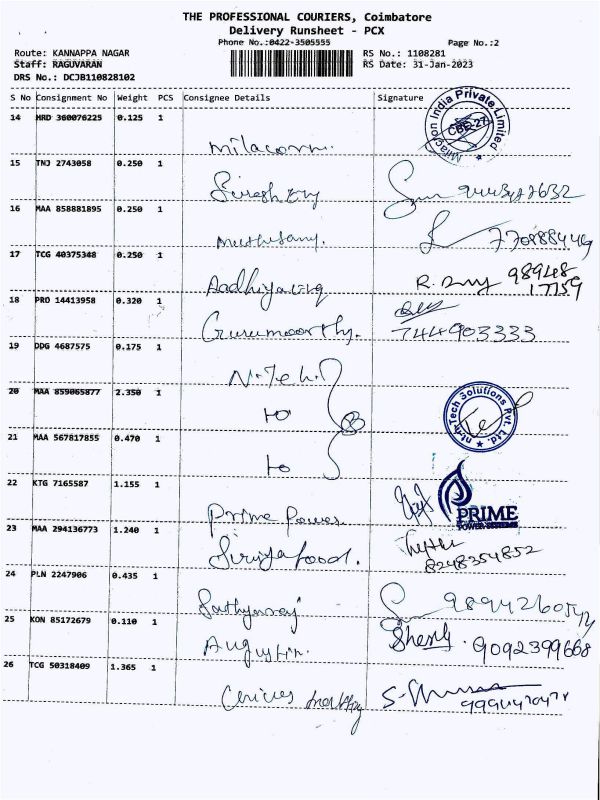 THE PROFESSIONAL COURIERS, Coimbatore
Delivery Runsheet - PCX
Phone No.:0422-3505555 Page No.:2
Route: KANNAPPA NAGAR RS No.: 1108281
Staff: RAGUVARAN RS Date: 31-Jan-2023
DRS No.: DCJB110828102
S No Consignment No Weight PCS Consignee Details Signature
14 HRD 360076225 0.125 1
Milacron India Private Limited
CBE-27
Milacron.
15 TNJ 2743058 0.250 1
16 MAA 858881895 0.250 1
Muthusamy.
17 TCG 40375348 0.250 1
98948
17159
18 PRO 14413958 0.320 1
Gurumoorthy. 744903333
19 DDG 4687575 0.175 1
N-Tech.
20 MAA 859065877 2.350 1
Tech Solutions Pvt. Ltd.
21 MAA 567817855 0.470 1
22 KTG 7165587 1.155 1
PRIME
POWER SYSTEMS
Prime Power
23 MAA 294136773 1.240 1
8248354852
24 PLN 2247906 0.435 1
Sathyaraj
25 KON 85172679 0.110 1
Augustin. 9092399668
26 TCG 50318409 1.365 1